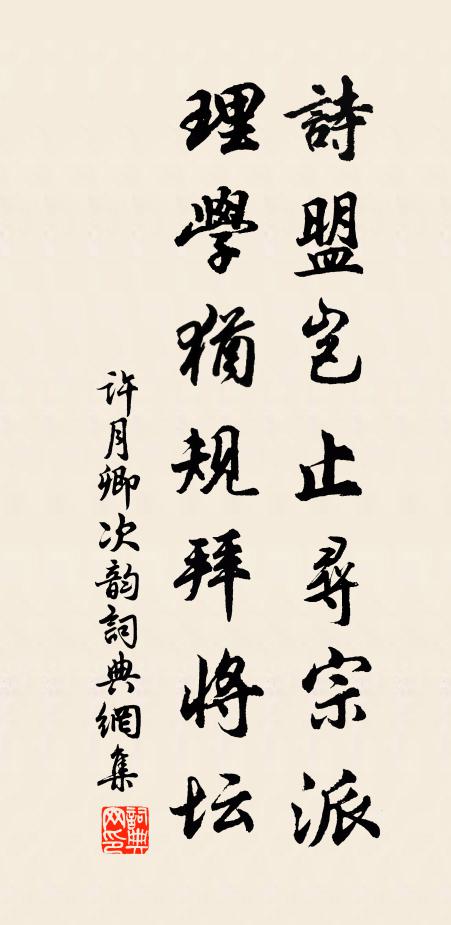 詩盟岂止尋宗派
理學猶規拜将坛
许月卿次韵詞典網集
詞典网印